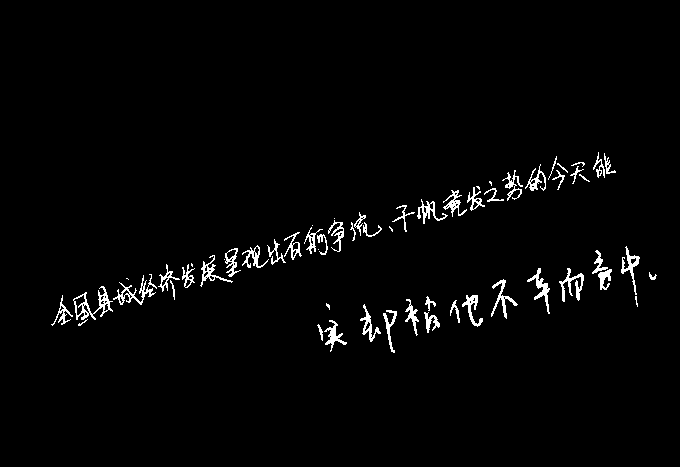 全国县域经济发展呈现出百舸争流、千帆竞发之势的今天能
实却被他不幸而言中。